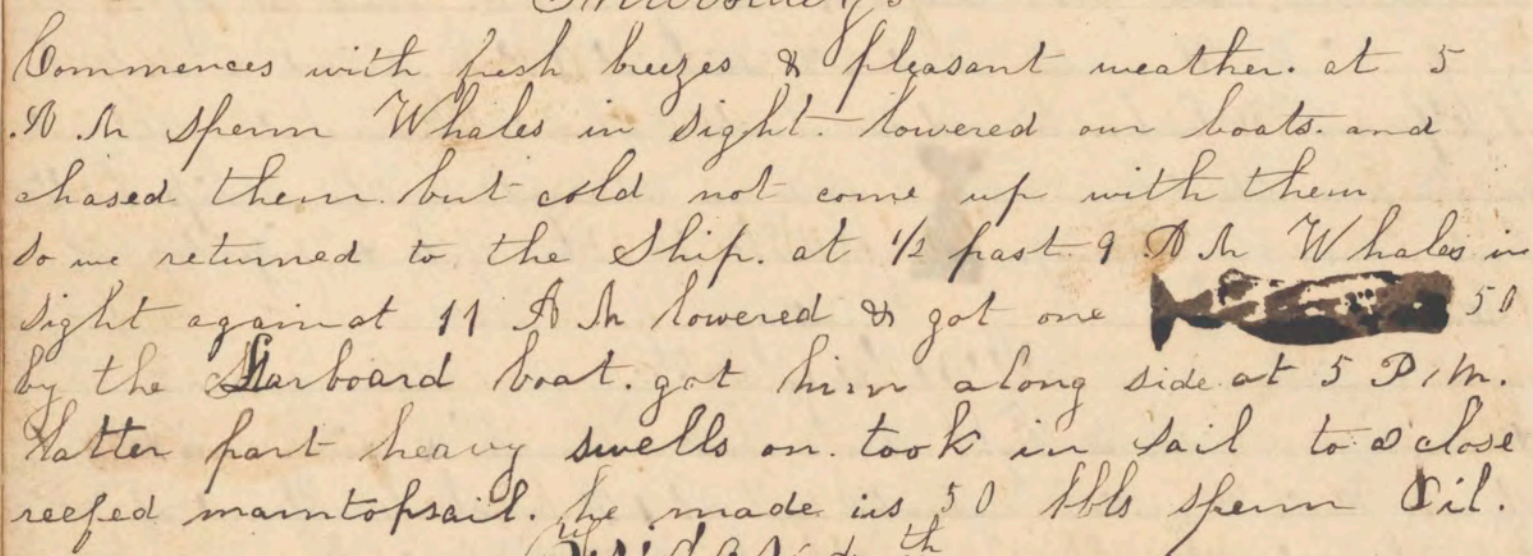 Commences with fresh breezes & pleasant weather. at 5
A.M sperm Whales in Sight. lowered our boats. and
chased them. but cold not come up with them
So we returned to the Ship. at 1/2 past 9 A M Whales in
Sight again at 11 A M lowered & got one 50
by the Starboard boat. got him along side at 5 P.M.
Latter part heavy swells on. took in Sail to a close
reefed maintopsail. he made us 50 bbls sperm Oil.